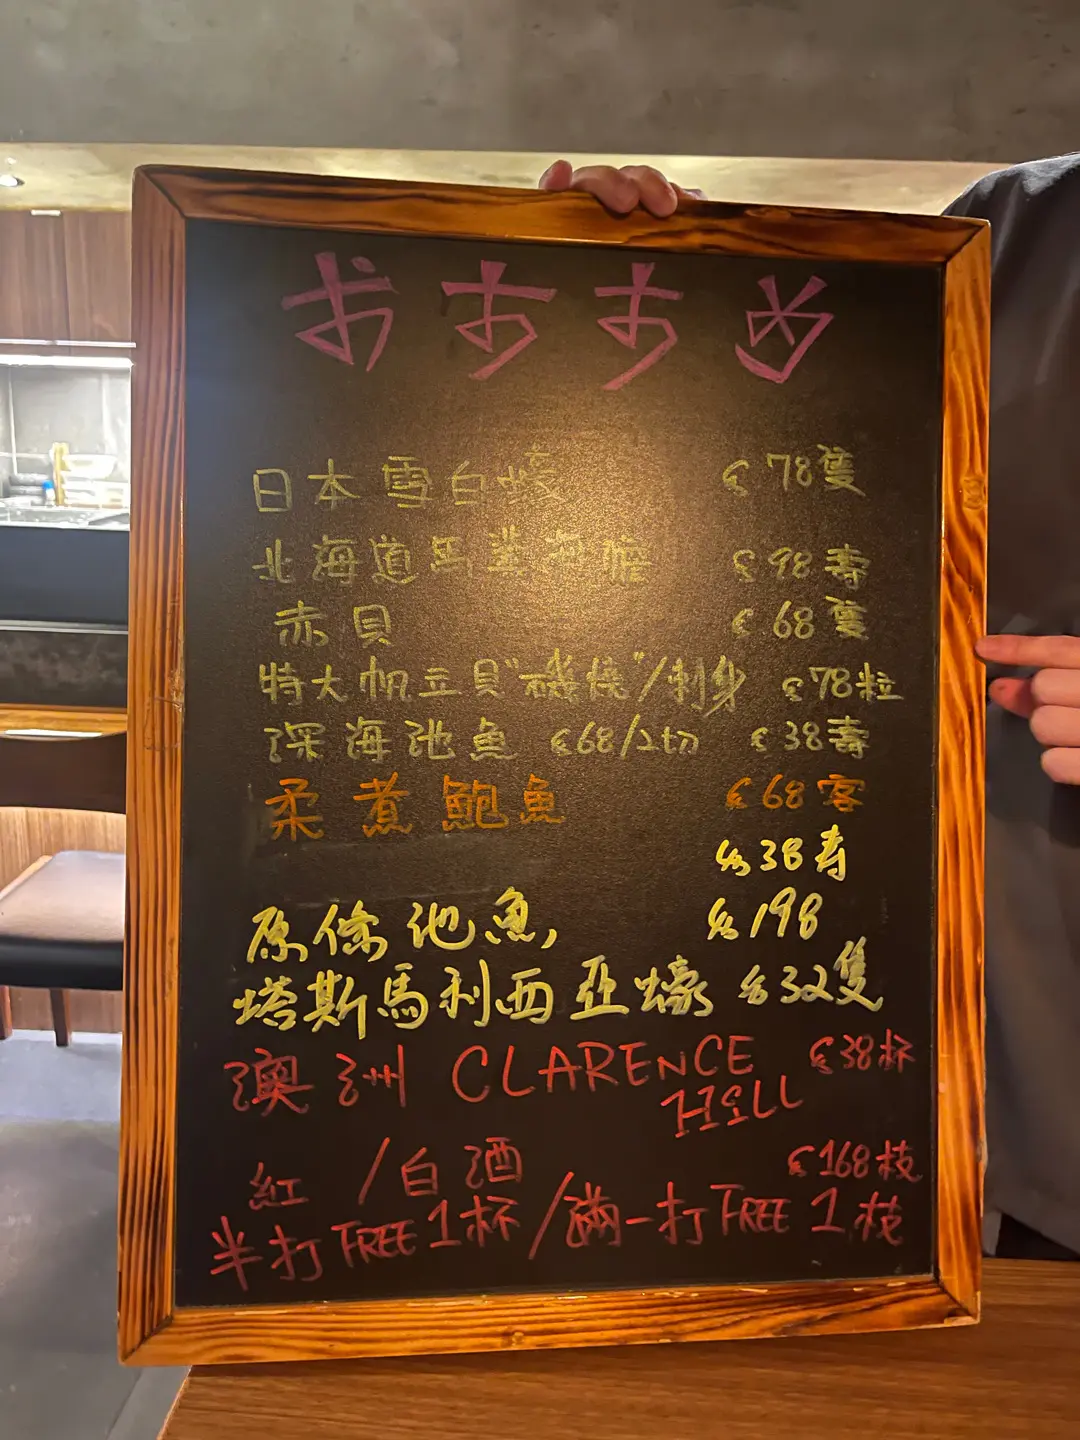 おすすめ
日本雪白蠔 $78隻
北海道馬糞海膽 $98壽
赤貝 $68隻
特大帆立貝"磯燒"/刺身 $78粒
深海池魚 $68/2切 $38壽
柔煮鮑魚 $68客
$38壽
原條池魚, $198
塔斯馬利西亞蠔 $32隻
澳洲 CLARENCE HILL $38杯
紅/白酒 $168枝
半打 FREE 1杯/滿一打 FREE 1枝